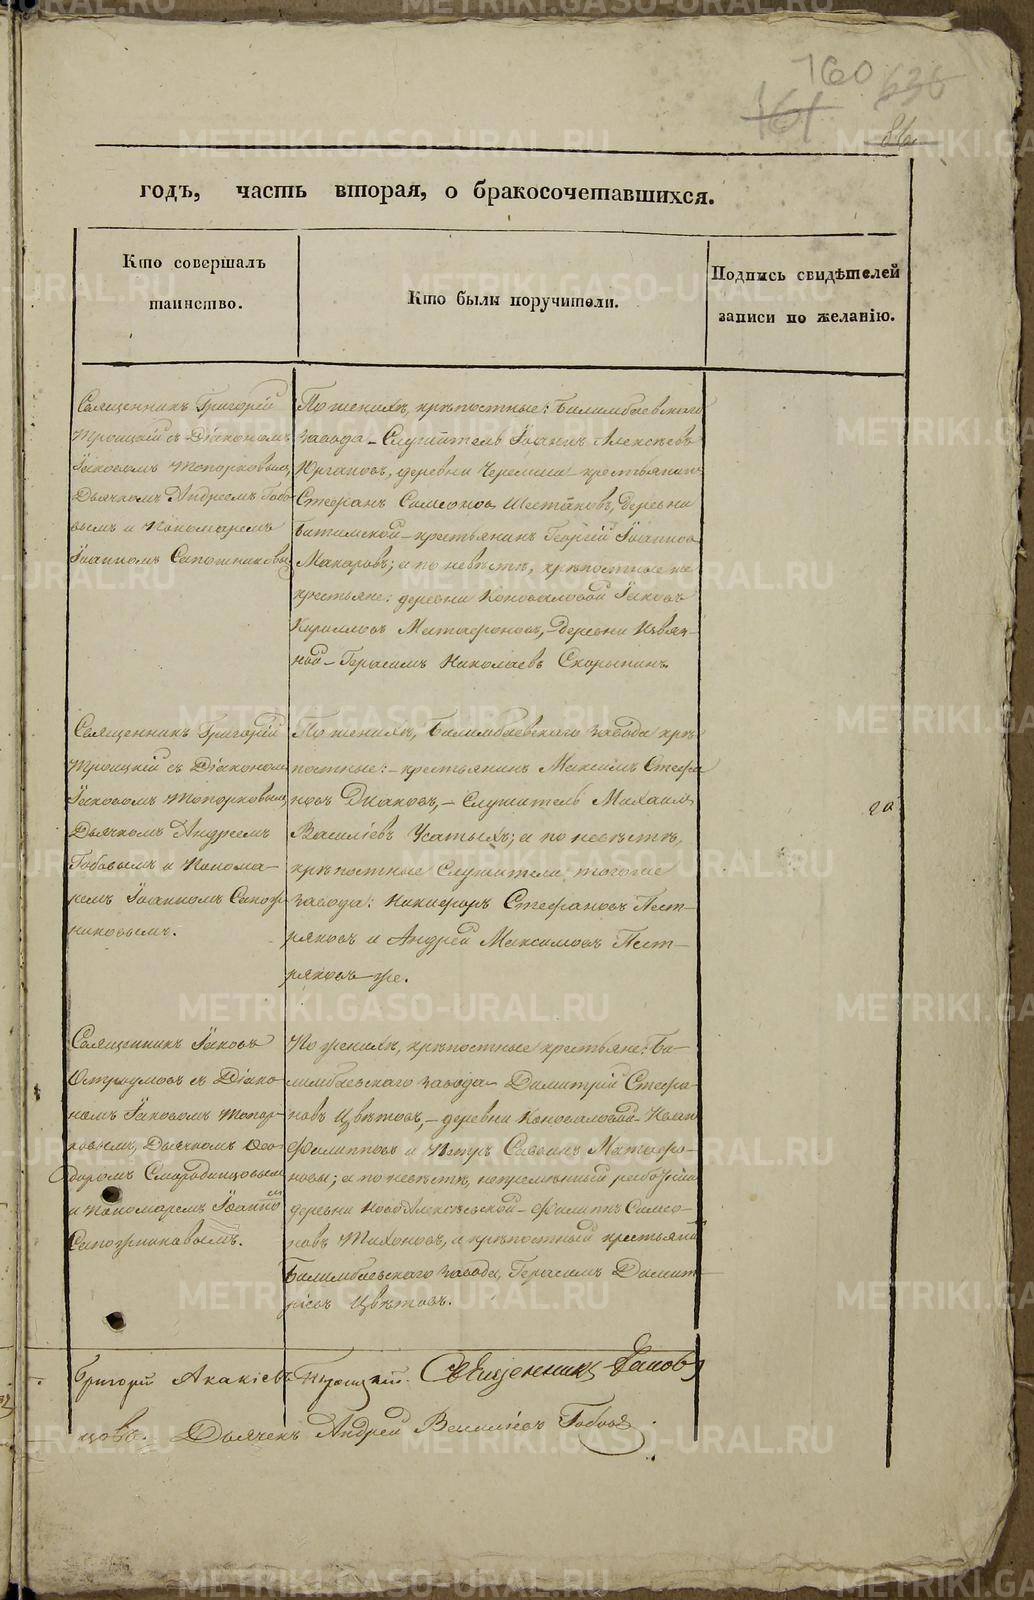 160 636
161
86
годъ, часть вторая, о бракосочетавшихся.
Кто совершалъ
таинство.
Кто были поручители.
Подпись свидѣтелей
записи по желанію.
Священникъ Григорій
Троицкій съ Діакономъ
Іаковомъ Топорковымъ,
Дьячкомъ Андреемъ Гобо-
вымъ и Пономаремъ
Іоанномъ Сапожниковы
По женихѣ, крѣпостные: Билимбаевскаго
завода – Служитель Іоаннъ Алексѣевъ
Юргановъ, деревни Черемши крестьянинъ
Стефанъ Симеоновъ Шестаковъ, деревни
Битимской – крестьянинъ Георгій Іоанновъ
Макаровъ; а по невѣстѣ, крѣпостные же
крестьяне: деревни Коноваловой Іаковъ
Кирилловъ Матафоновъ, – деревни Извяз-
ной – Герасимъ Николаевъ Скорынинъ.
Священникъ Григорій
Троицкій съ Діакономъ
Іаковомъ Топорковымъ,
Дьячкомъ Андреемъ
Гобовымъ и Понома-
ремъ Іоанномъ Сапож-
никовымъ.
По женихѣ, Билимбаевскаго завода крѣ-
постные: – крестьянинъ Максимъ Стефа
новъ Диаковъ, – Служитель Михаилъ
Василіевъ Усатыхъ; а по невѣстѣ,
крѣпостные Служители тогоже
завода: Никифоръ Стефановъ Пест-
ряковъ и Андрей Максимовъ Пест-
ряковъ же.
Священникъ Іаковъ
Остроумовъ съ Діако-
номъ Іаковомъ Топор-
ковымъ, Дьячкомъ Ѳео-
доромъ Смородинцовымъ
и Пономаремъ Іоанно
мъ
Сапожниковымъ.
По женихѣ, крѣпостные крестьяне: Би-
лимбаевскаго завода – Димитрій Стефа-
новъ Цвѣтовъ, – деревни Коноваловой – Иванъ
Филипповъ и Петръ Саввинъ Матафо-
новы; а по невѣстѣ, непремѣнный работникъ
деревни НовоАлексѣевской – Филиппъ Симео-
новъ Тихоновъ, и крѣпостный крестьяни
Билимбаевскаго завода, Герасимъ Димит
ріевъ Цвѣтовъ.
Григорій Акакіевъ Троицкій. Священникъ Іаковъ
цовъ. Дьячекъ Андрей Василіевъ Гобовъ